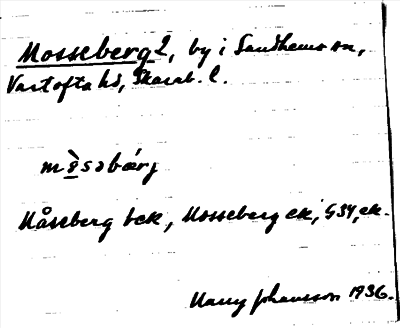 Mosseberg 2, by i Sandhems sn,
Vartofta hd, Skarab. l.
Måseberg bek, Mosseberg ek, G34, ek.
Harry Johansson 1936.